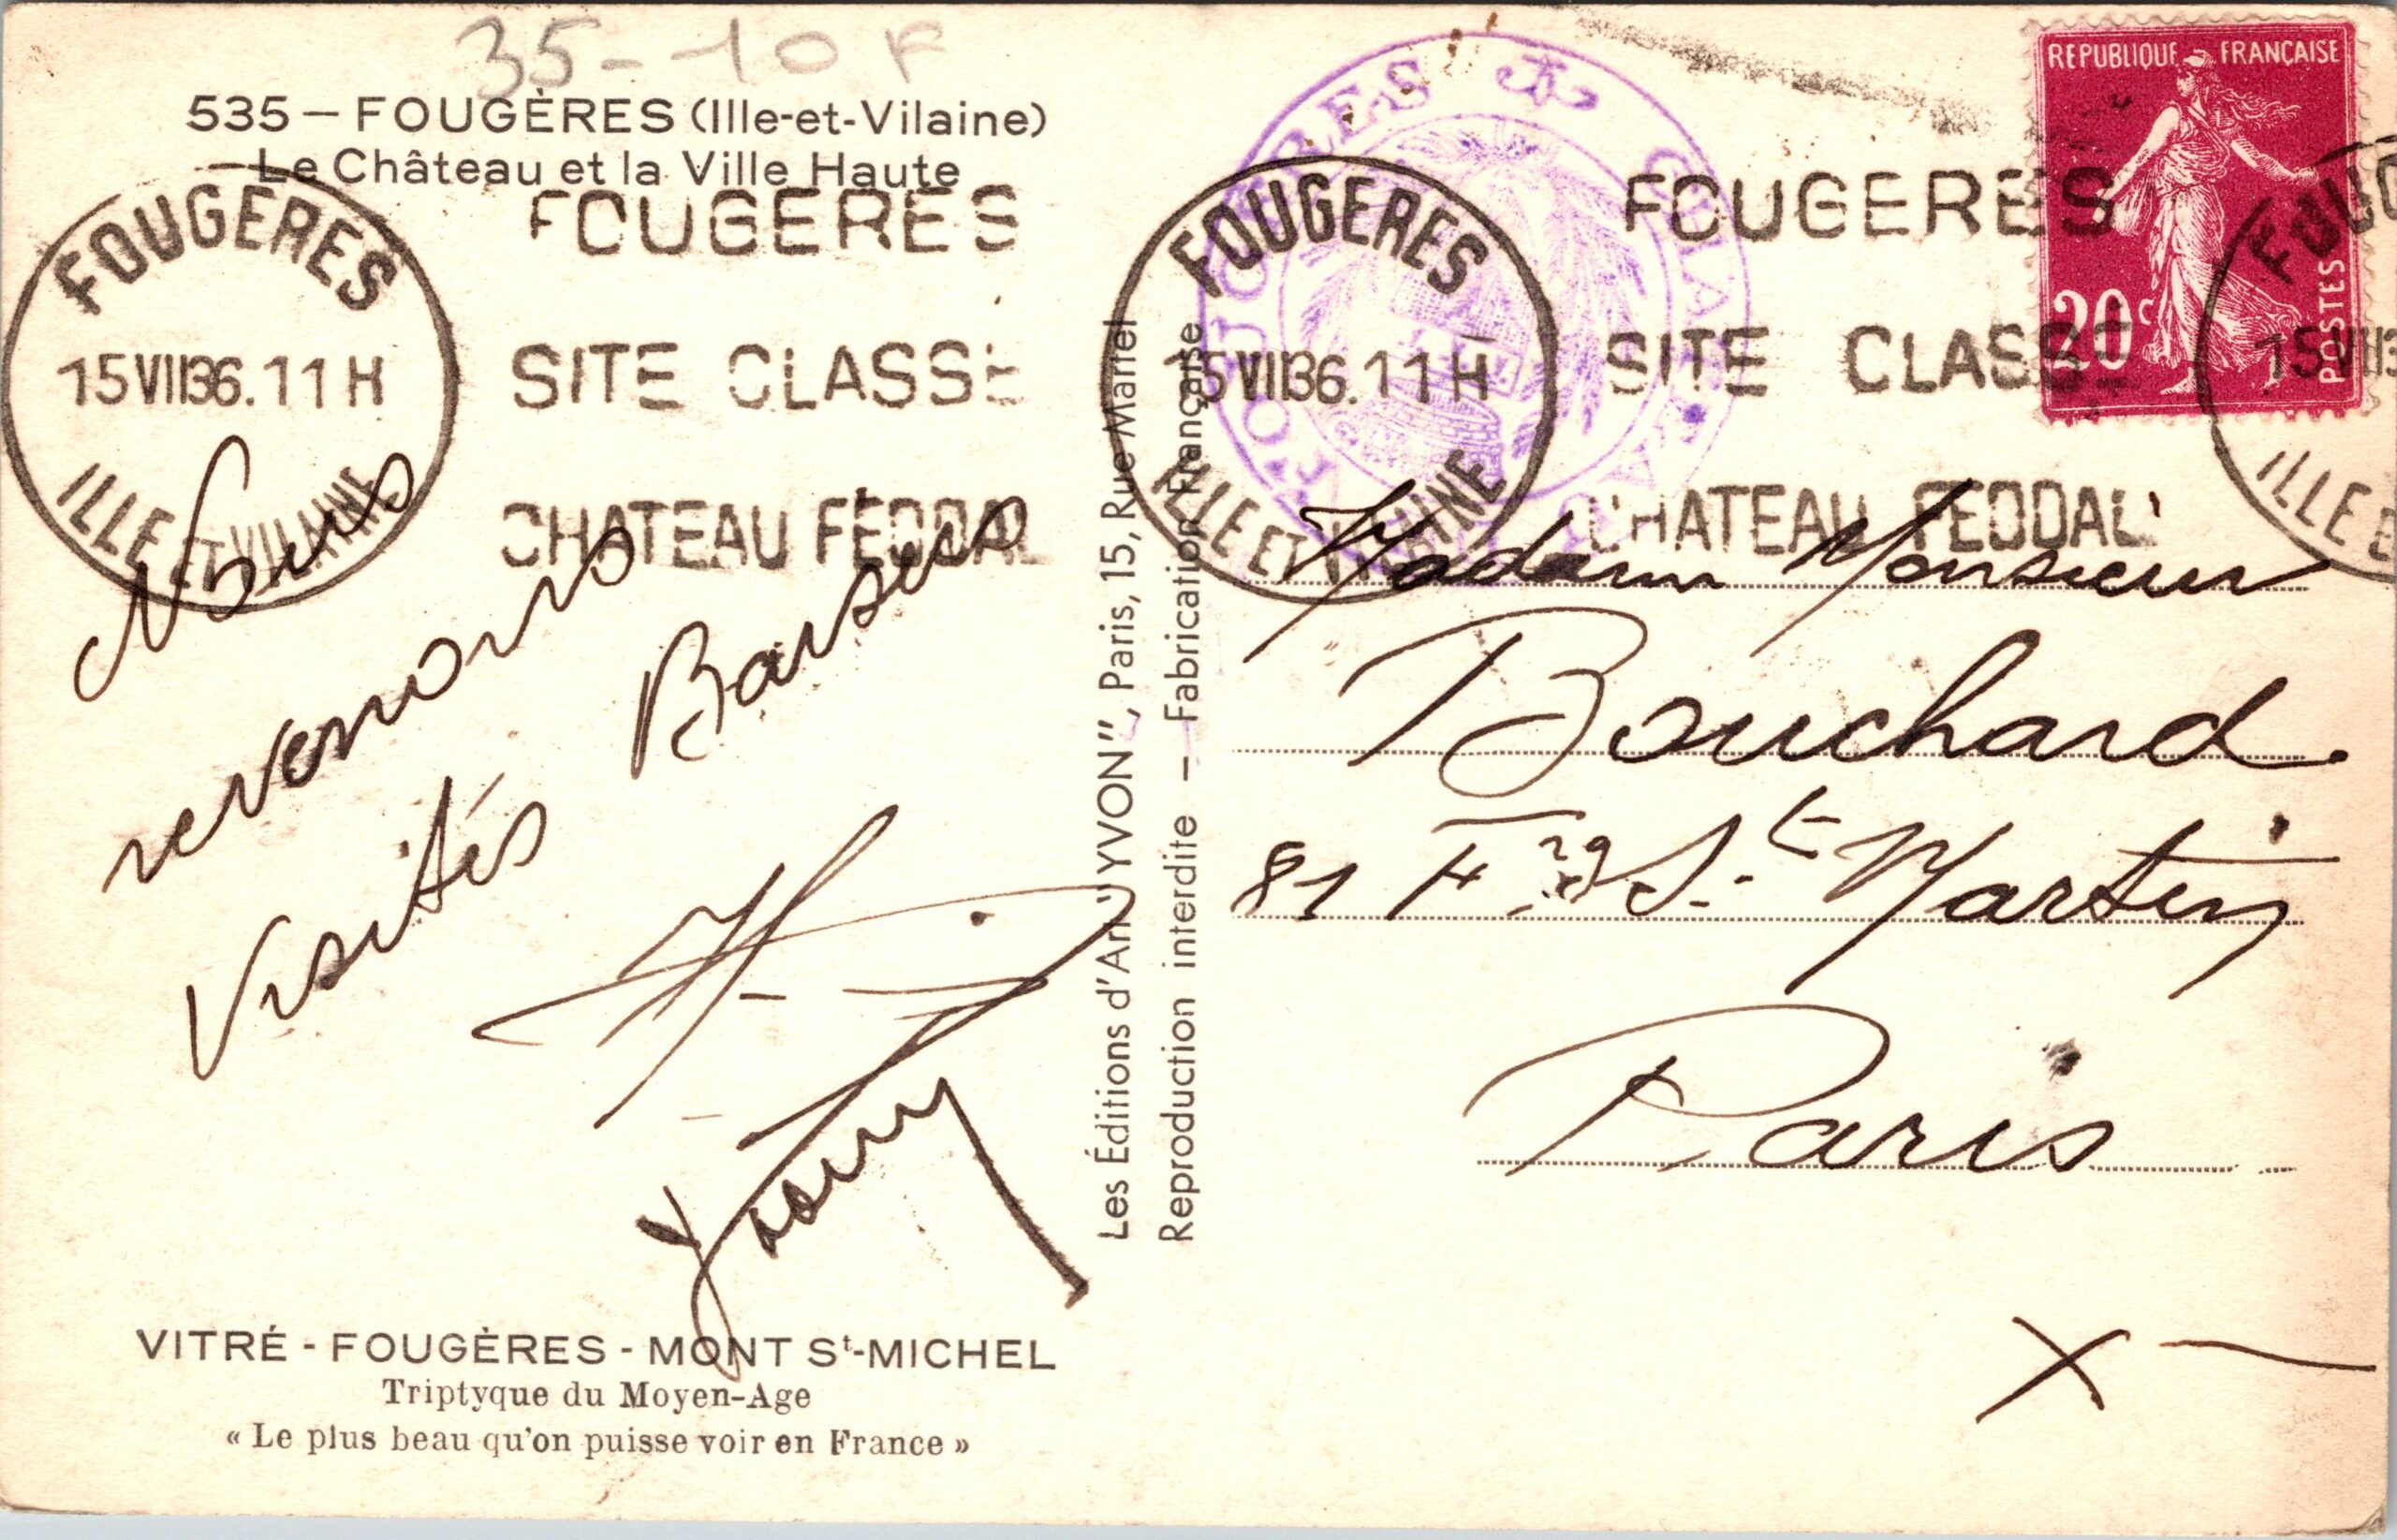 35-10 F
535 — FOUGÈRES (Ille-et-Vilaine)
Le Château et la Ville Haute
FOUGERES
15 VII 36. 11 H
ILLE ET VILAINE
FOUGERES
SITE CLASSE
CHATEAU FEODAL
Nous
revenons
Visités
Baisers
VITRÉ - FOUGÈRES - MONT St-MICHEL
Triptyque du Moyen-Age
« Le plus beau qu'on puisse voir en France »
Les Éditions d'Art "YVON", Paris, 15, Rue Martel
Reproduction interdite — Fabrication Française
FOUGÈRES
FOUGERES
15 VII 36. 11 H
ILLE ET VILAINE
FOUGERES
SITE CLASSE
CHATEAU FEODAL
REPUBLIQUE FRANÇAISE
20c
POSTES
15 VII 3
ILLE E
Madame Monsieur
Bouchard.
81 Fg St Martin
Paris